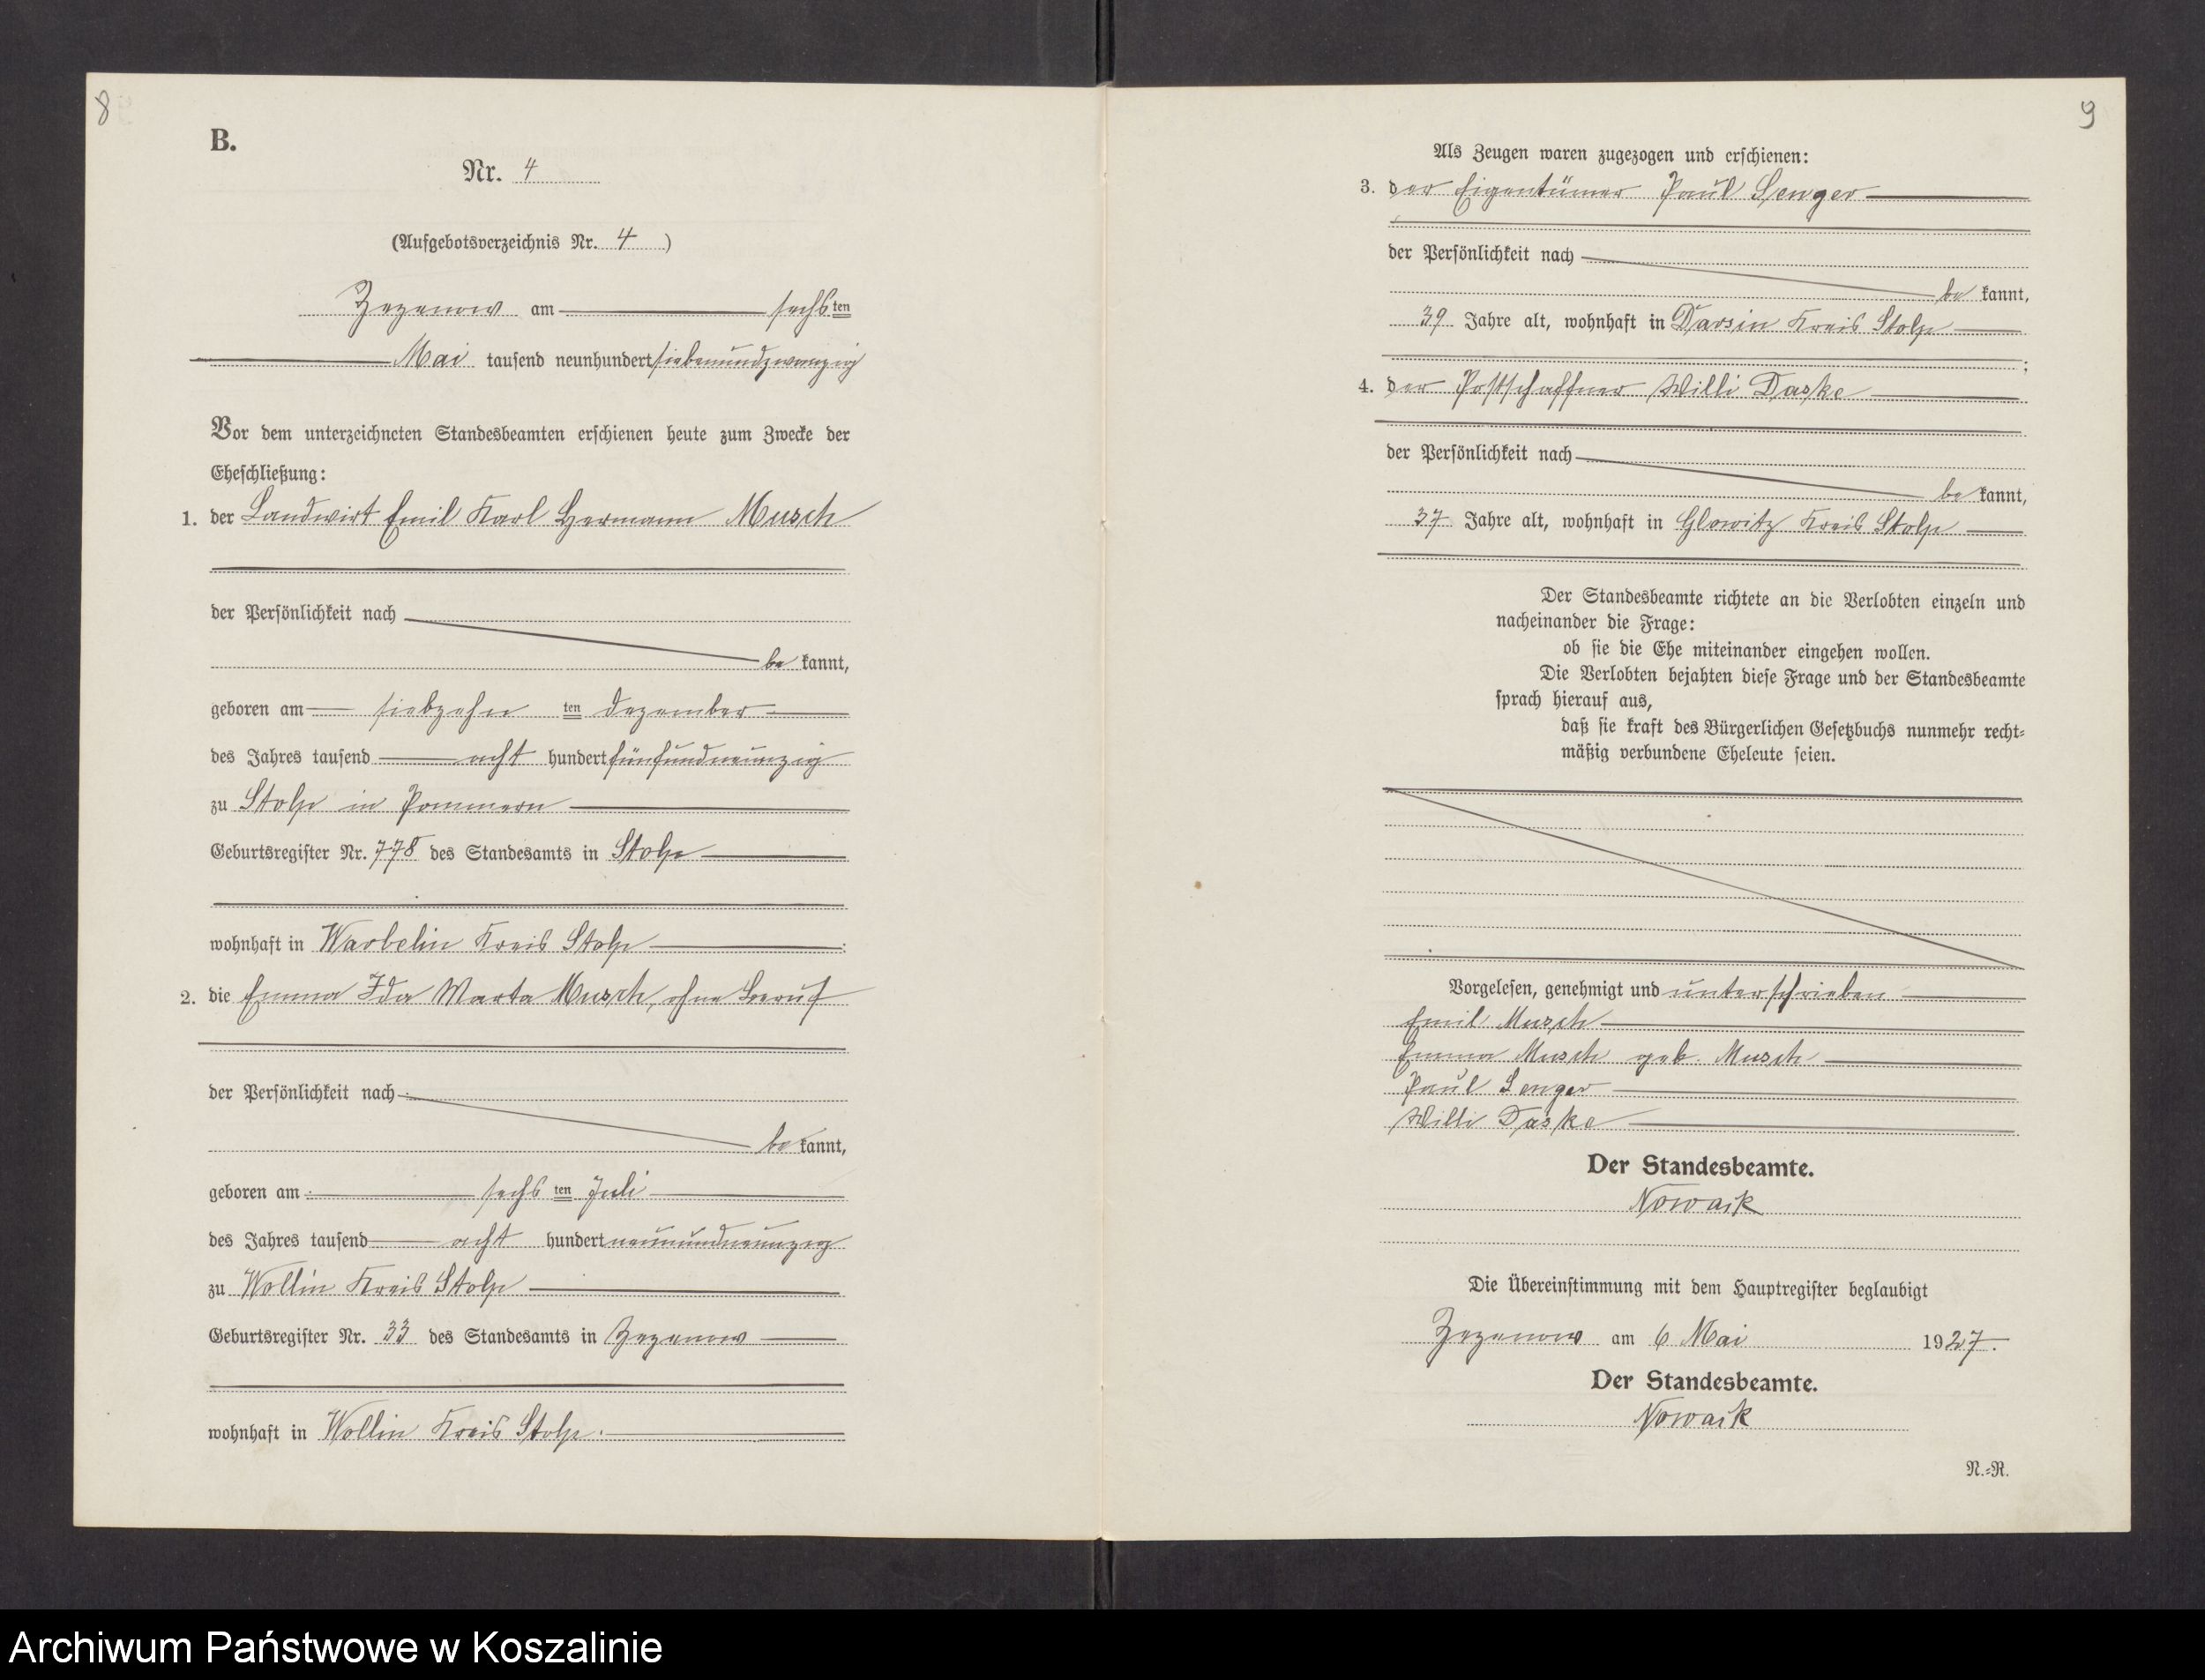 8
B.
Nr. 4
(Aufgebotsverzeichnis Nr. 4)
Zezenow am sechsten
Mai tausend neunhundert siebenundzwanzig
Vor dem unterzeichneten Standesbeamten erschienen heute zum Zwecke der
Eheschließung:
1. der Landwirt Emil Karl Hermann Musch
der Persönlichkeit nach
bekannt,
geboren am siebzehnten Dezember
des Jahres tausend acht hundert fünfundneunzig
zu Stolp in Pommern
Geburtsregister Nr. 778 des Standesamts in Stolp
wohnhaft in Warbelin Kreis Stolp;
2. die Emma Ida Marta Musch, ohne Beruf
der Persönlichkeit nach
bekannt,
geboren am sechsten Juli
des Jahres tausend acht hundert neunundneunzig
zu Wollin Kreis Stolp
Geburtsregister Nr. 33 des Standesamts in Zezenow
wohnhaft in Wollin Kreis Stolp.
9
Als Zeugen waren zugezogen und erschienen:
3. der Eigentümer Paul Senger
der Persönlichkeit nach
bekannt,
39 Jahre alt, wohnhaft in Darsin Kreis Stolp
;
4. der Postschaffner Willi Daske
der Persönlichkeit nach
bekannt,
37 Jahre alt, wohnhaft in Glowitz Kreis Stolp
Der Standesbeamte richtete an die Verlobten einzeln und
nacheinander die Frage:
ob sie die Ehe miteinander eingehen wollen.
Die Verlobten bejahten diese Frage und der Standesbeamte
sprach hierauf aus,
daß sie kraft des Bürgerlichen Gesetzbuchs nunmehr recht-
mäßig verbundene Eheleute seien.
Vorgelesen, genehmigt und unterschrieben
Emil Musch
Emma Musch geb. Musch
Paul Senger
Willi Daske
Der Standesbeamte.
Nowack
Die Übereinstimmung mit dem Hauptregister beglaubigt
Zezenow am 6 Mai 1927.
Der Standesbeamte.
Nowack
N.-R.
Archiwum Państwowe w Koszalinie